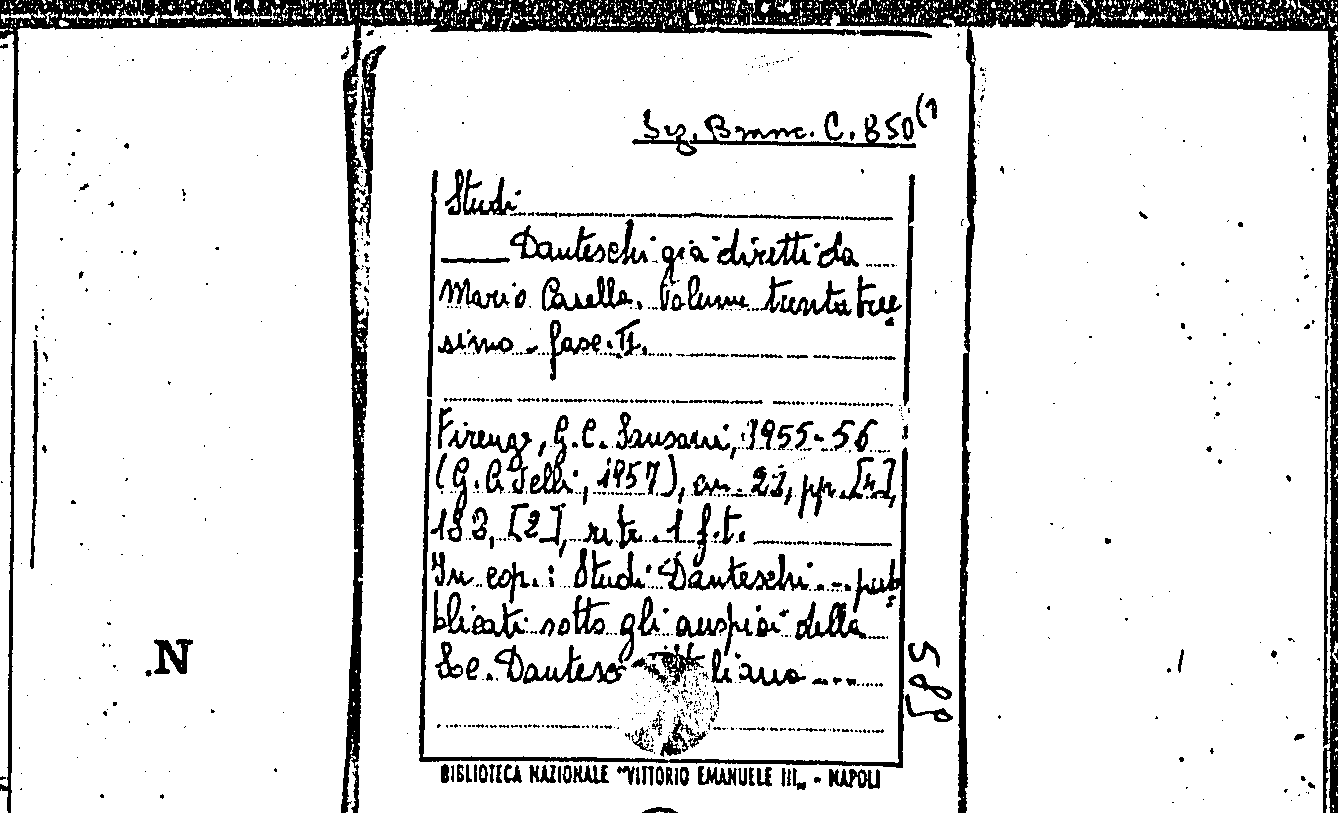 Sez. Branc. C. 850(1
Studi
Danteschi già diretti da
Mario Casella. Volume trentatree
simo - fasc. II.
Firenze, G.C. Sansoni, 1955-56
(G. Celli, 1957), cm. 21, pp. [4],
183, [2], ritr. 1 f.t.
In cop.: Studi Danteschi ... pub
blicati sotto gli auspici della
Soc. Dantesc liana ....
585
BIBLIOTECA NAZIONALE "VITTORIO EMANUELE III„ - NAPOLI
N